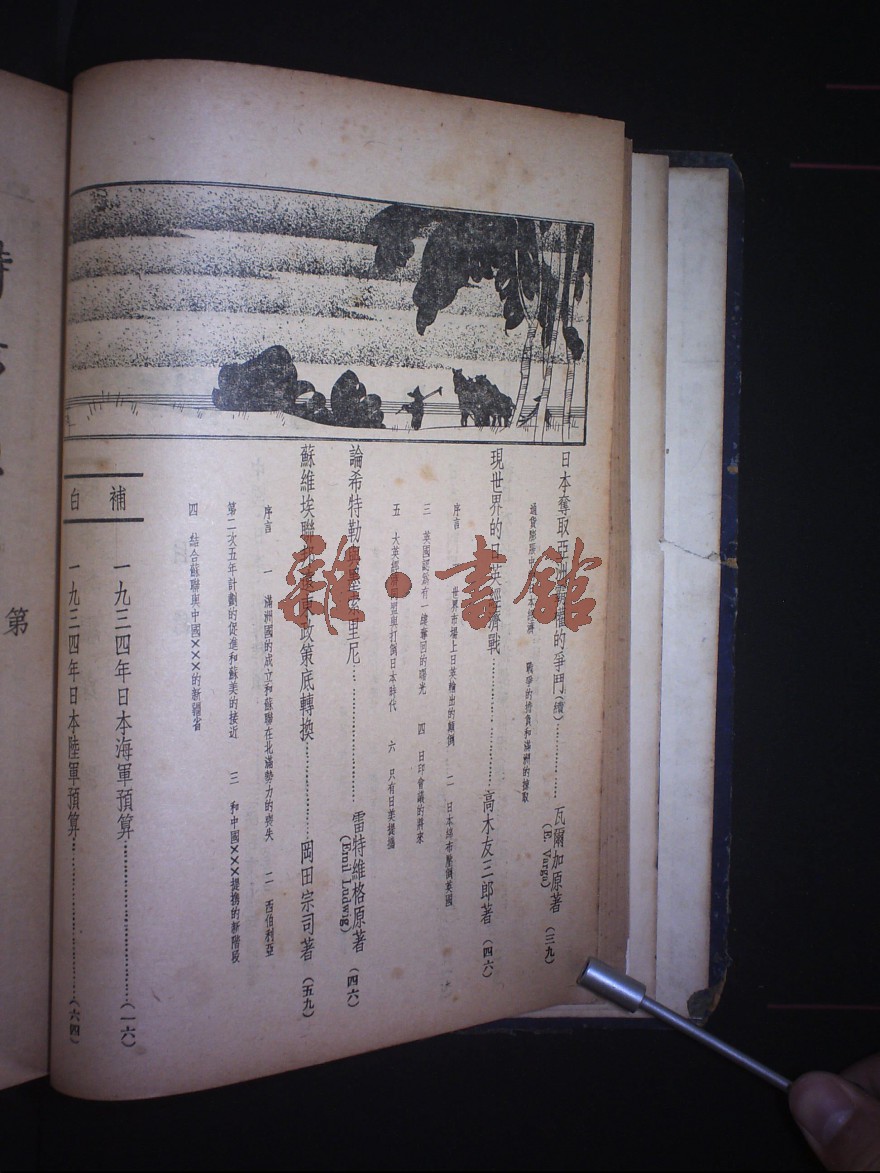 日本奪取亞洲霸權的爭鬥(續)…………瓦爾加原著 (E. Varga) (三九)
通貨膨脹中的日本經濟 戰爭的擔負和滿洲的掠取
現世界的日英經濟戰…………高木友三郎著 (四六)
序言 一 世界市場上日英輸出的顛倒 二 日本綿布壓倒英國
三 英國認爲有一縷奪回的曙光 四 日印會議的將來
五 大英經濟同盟與打倒日本時代 六 只有日美提攜
論希特勒與墨索里尼…………雷特維格原著 (Emil Ludwig) (四六)
蘇維埃聯邦遠東政策底轉換…………岡田宗司著 (五九)
序言 一 滿洲國的成立和蘇聯在北滿勢力的喪失 二 西伯利亞
第二次五年計劃的促進和蘇美的接近 三 和中國×××提攜的新階段
四 結合蘇聯與中國×××的新疆省
補白
一九三四年日本海軍預算…………(一六)
一九三四年日本陸軍預算…………(六四)
第
雜·書館